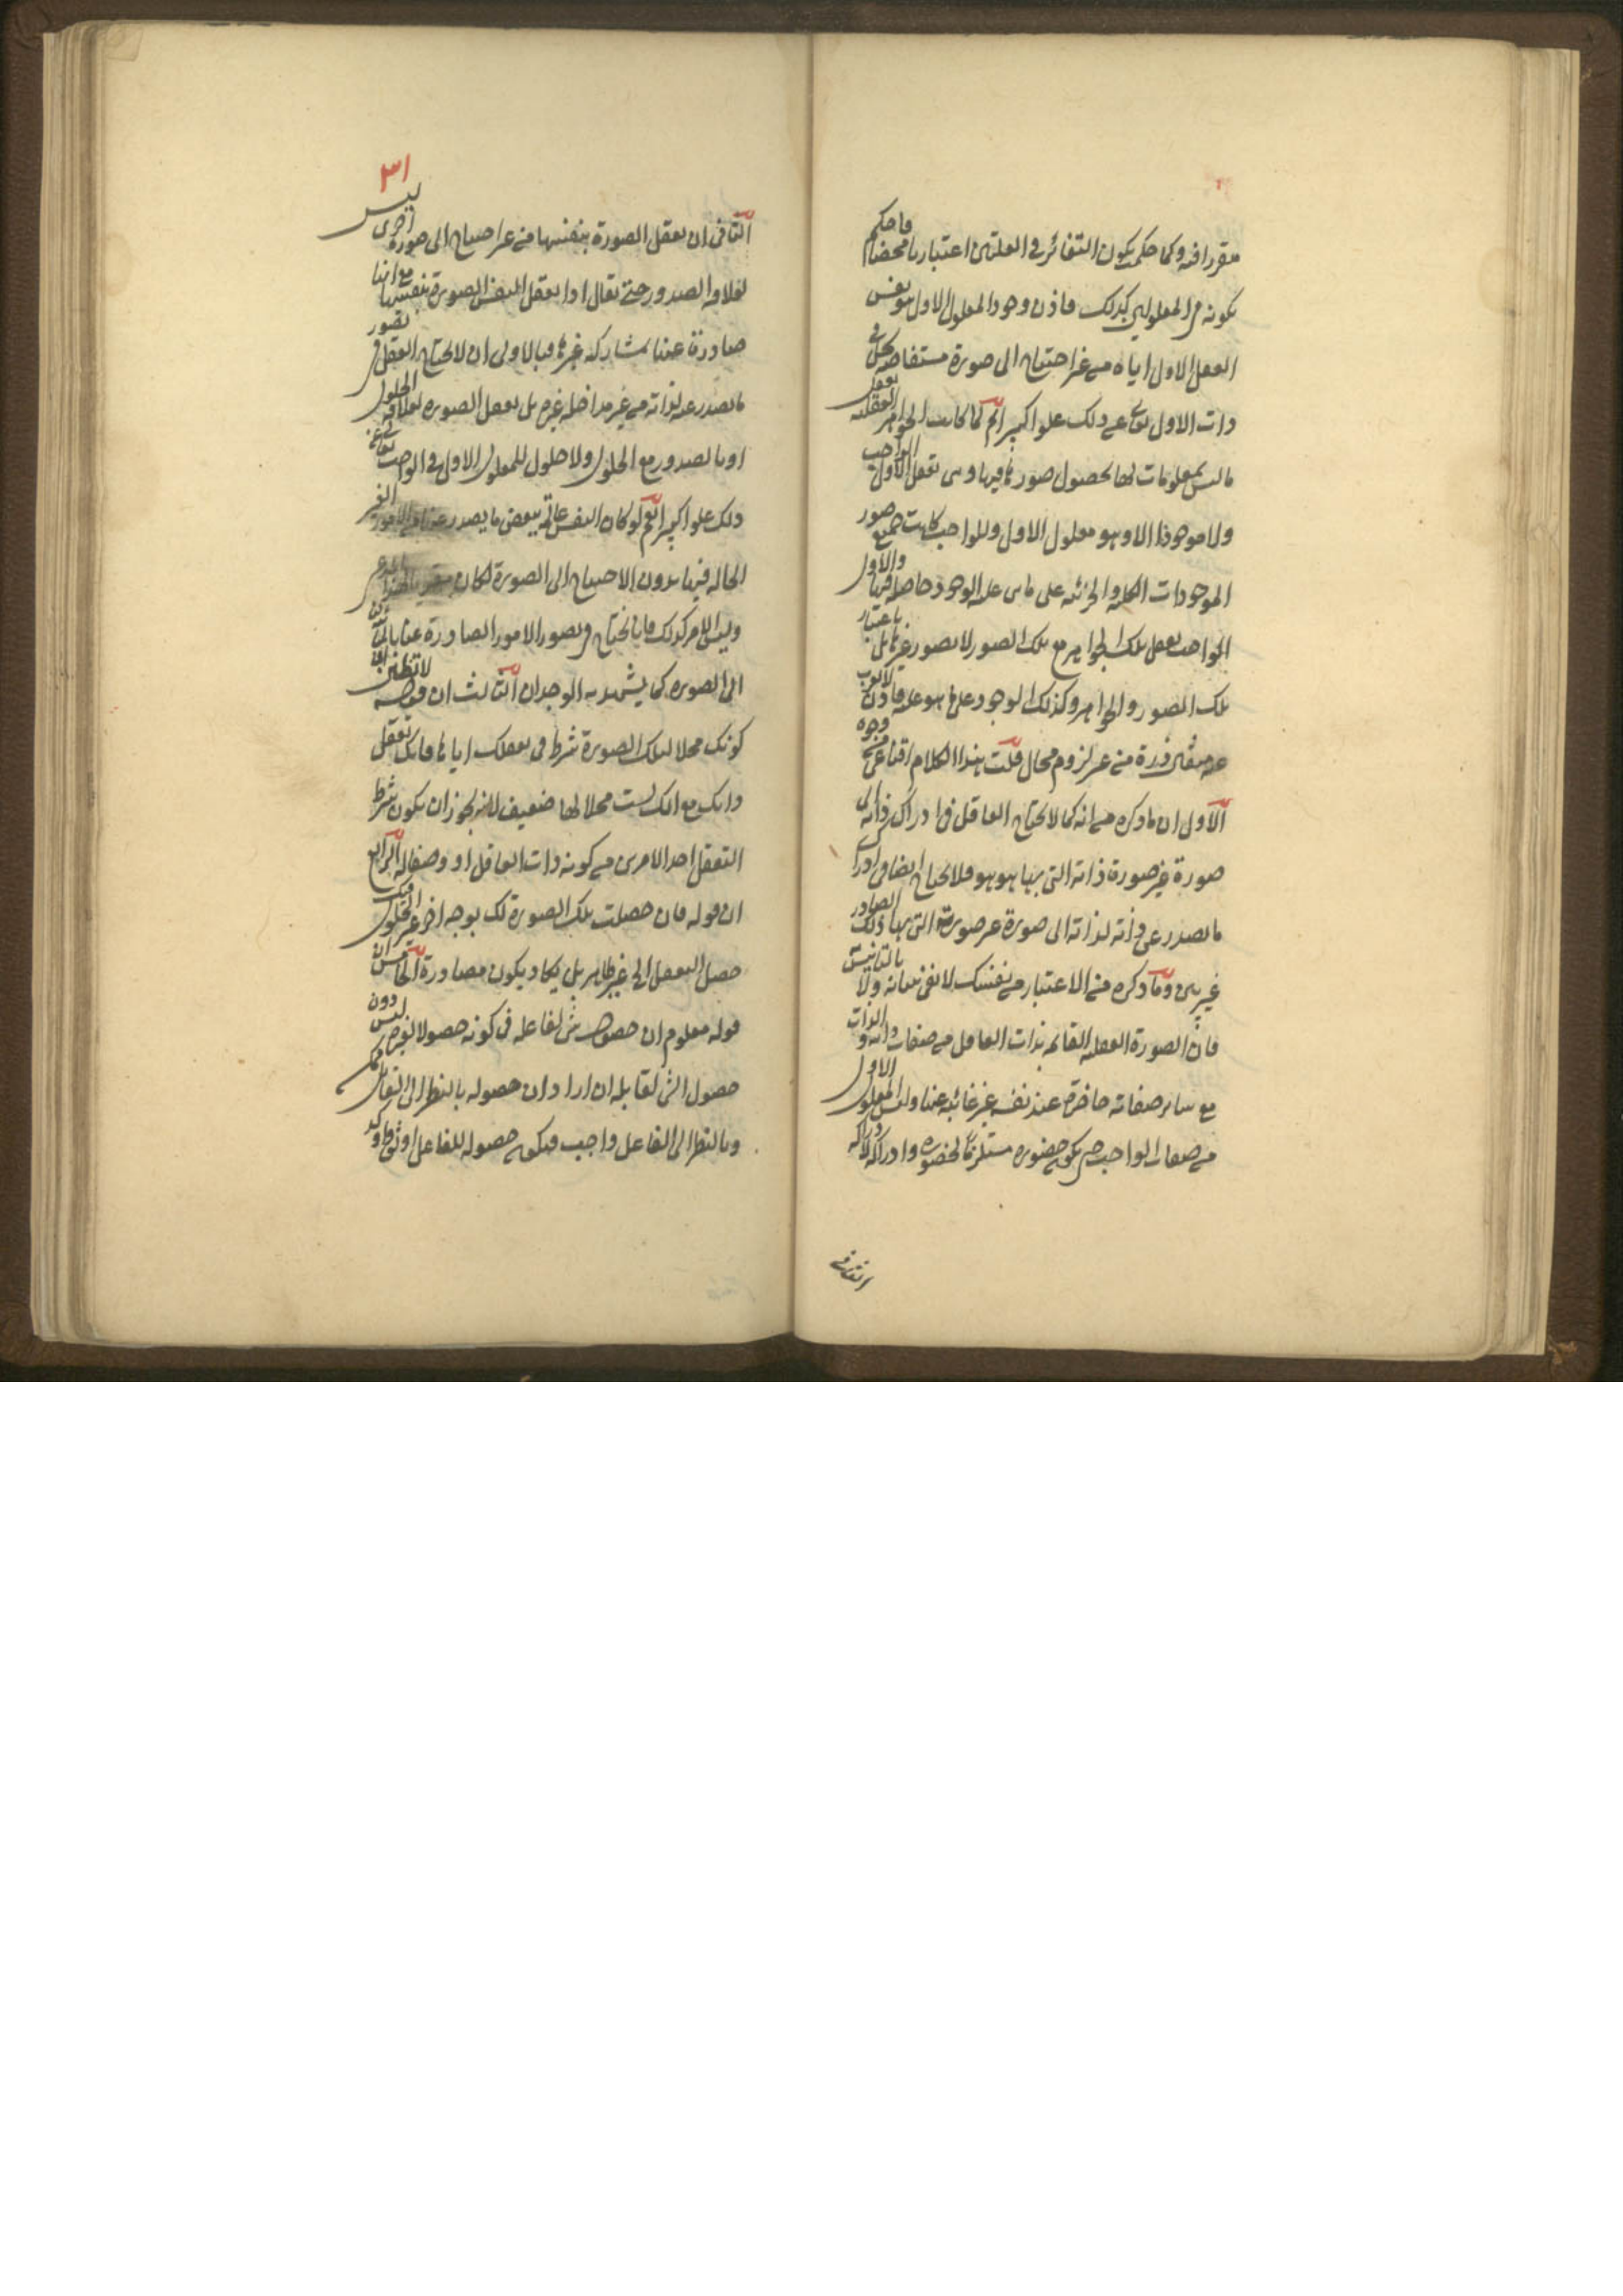 متقررا فيه وكما حكمت بكون التغائر في العلتين اعتباريا محضا فاحكم
بكونه في المعلولين كذلك فاذن وجود المعلول الاول هو نفس
العقل الاول اياه من غير احتياج الى صورة مستفاضة تحل في
ذات الاول تعالى عن ذلك علوا كبيرا ثم لما كانت الجواهر العقلية تعقل
ما ليس بمعلومات لها بحصول صورها فيها وهى تعقل الاول الواجب
ولا موجود الا وهو معلول الاول وللواجب كانت جميع صور
الموجودات الكلية والجزئية على ما عليه الوجود حاصلة فيها والاول
الواجب يعقل تلك الجواهر مع تلك الصور لا بصور غيرها بل باعتبار
تلك الصور والجواهر وكذلك الوجود على ما هو عليه فاذن لا يعزب
عنه مثقال ذرة من غير لزوم محال قلت هذا الكلام اقناعى وجوه
الاول ان ما ذكره من انه كما لا يحتاج العاقل في ادراك ذاته الى
صورة غير صورة ذاته التى بها هو هو فلا يحتاج ايضا في ادراك
ما يصدر عن ذاته لذاته الى صورة غير صورة التى بها ذلك الصادر
غير بين وما ذكره من الاعتبار من نفسك لا يفى ببيانه ولا بالتانيس
فان الصورة العقلية القائمة بذات العاقل من صفات ذاته والذات
مع سائر صفاته حاضرة عند نفسه غير غائبة عنها وليس المعلول الاول
من صفات الواجب حتى يكون حضوره مستلزما لحضوره وادراكه لادراكه
الثانى
٣١
الثانى ان تعقل الصورة بنفسها من غير احتياج الى صورة اخرى ليس
لعلاقة الصدور حتى يقال اذا تعقل النفس الصورة بنفسها مع انها
صادرة عنها بمشاركة غيرها فبالاولى ان لا يحتاج العقل في تصور
ما يصدر عنه لذاته من غير مداخلة غيره بل تعقل الصورة لعلاقة الحلول
او بالصدور مع الحلول ولا حلول للمعلول الاول في الواجب تعالى عن
ذلك علوا كبيرا نعم لو كان النفس عالمة ببعض ما يصدر عنها من الامور الغير
الحالة فيها بدون الاحتياج الى الصورة لكان
وليس الامر كذلك فانا نحتاج في تصور الامور الصادرة عنا
الى الصورة كما يشهد به الوجدان الثالث ان قوله لا تظنن ان
كونك محلا لتلك الصورة شرط في تعقلك اياها فانك تعقل
ذاتك مع انك لست محلا لها ضعيف لانه يجوز ان يكون شرط
التعقل احد الامرين من كونه ذات العاقل او وصفا له الرابع
ان قوله فان حصلت تلك الصورة لك بوجه اخر غير الحلول فيك
حصل التعقل الخ غير ظاهر بل يكاد يكون مصادرة الخامس ان
قوله معلوم ان حصول شئ لفاعله في كونه حصولا لغيره ليس دون
حصول الشئ لقابله ان اراد ان حصوله بالنظر الى القابل ممكن
وبالنظر الى الفاعل واجب فيكون حصوله للفاعل اوثق واوكد